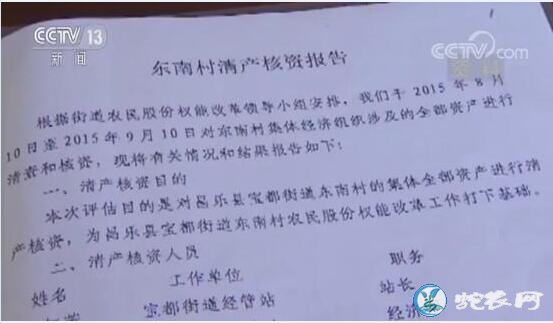 CCTV 13
新闻
CCTV.com
东南村清产核资报告
根据街道农民股份权能改革领导小组安排，我们于2015年8月
10日至2015年9月10日对东南村集体经济组织涉及的全部资产进行
清查和核资，现将有关情况和结果报告如下：
一、清产核资目的
本次评估目的是对昌乐县宝都街道东南村的集体全部资产进行清
产核资，为昌乐县宝都街道东南村农民股份权能改革工作打下基础。
二、清产核资人员
姓名
工作单位
职务
宝都街道经管站
站长
经济
蛇农网